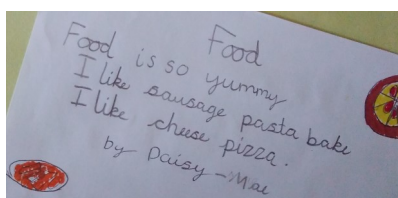 Food
Food is so yummy
I like sausage pasta bake
I like cheese pizza.
by Daisy-Mae